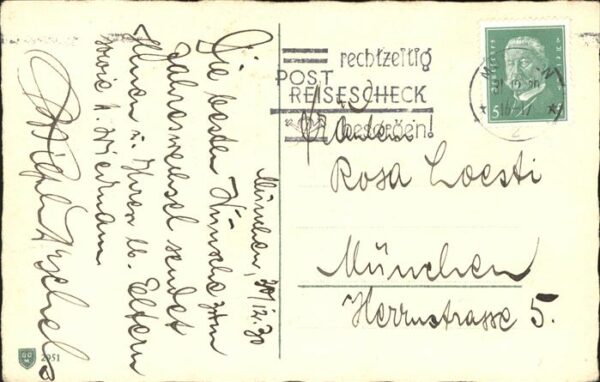 München, 30/12.30
Die besten Wünsche zum
Jahreswechsel sendet
Ihnen u. Ihren lb. Eltern
sowie
rechtzeitig
POST
REISESCHECK
besorgen!
5
Fräulein
Rosa Loesti
München
Herrnstrasse 5.
2951